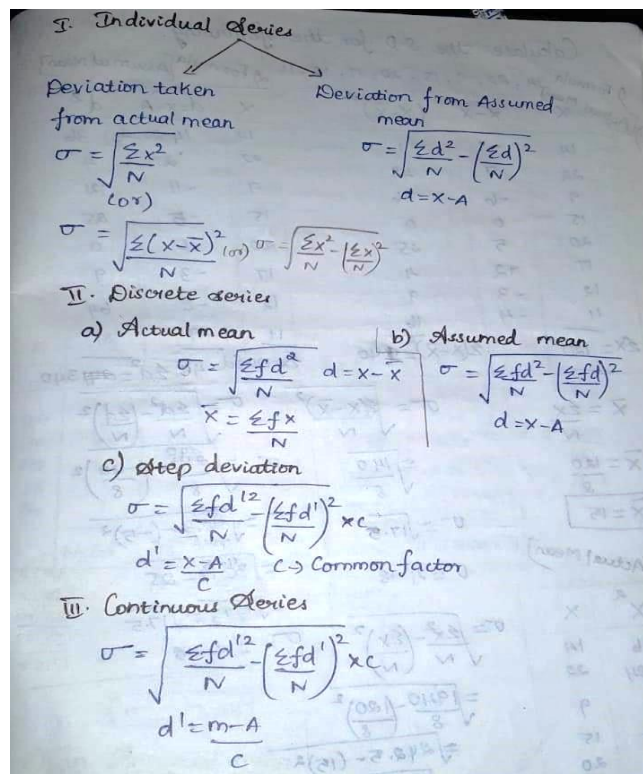 I. Individual Series
Deviation taken from actual mean
σ = √(Σx²/N)
(or)
σ = √(Σ(x-x̄)²/N) (or) σ = √(Σx²/N - (Σx/N)²)
Deviation from Assumed mean
σ = √(Σd²/N - (Σd/N)²)
d = x-A
II. Discrete series
a) Actual mean
σ = √(Σfd²/N) d = x-x̄
x̄ = Σfx/N
b) Assumed mean
σ = √(Σfd²/N - (Σfd/N)²)
d = x-A
c) Step deviation
σ = √(Σfd'²/N - (Σfd'/N)²) ×c
d' = x-A/C C→ Common factor
III. Continuous Series
σ = √(Σfd'²/N - (Σfd'/N)²) ×c
d' = m-A/C